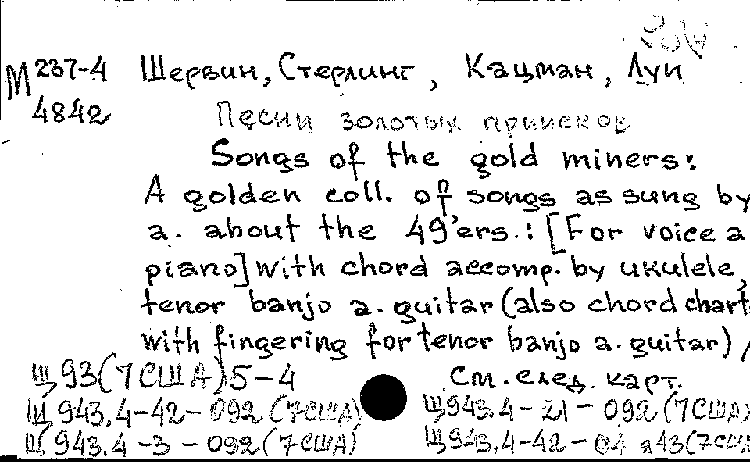 М 237-4 Шервин, Стерлинг, Кацман, Луи
4842
Песни золотых приисков
Songs of the gold miners:
A golden coll. of songs as sung by
a. about the 49'ers.: [For voice a
piano] with chord accomp. by ukulele,
tenor banjo a. guitar (also chord chart
with fingering for tenor banjo a. guitar) /
Щ93(7США)5-4 См. след. карт.
Щ943.4-42-092(7США) Щ943.4-21-092(7США)
Щ943.4-3-092(7США) Щ943.4-42-04я43(7США